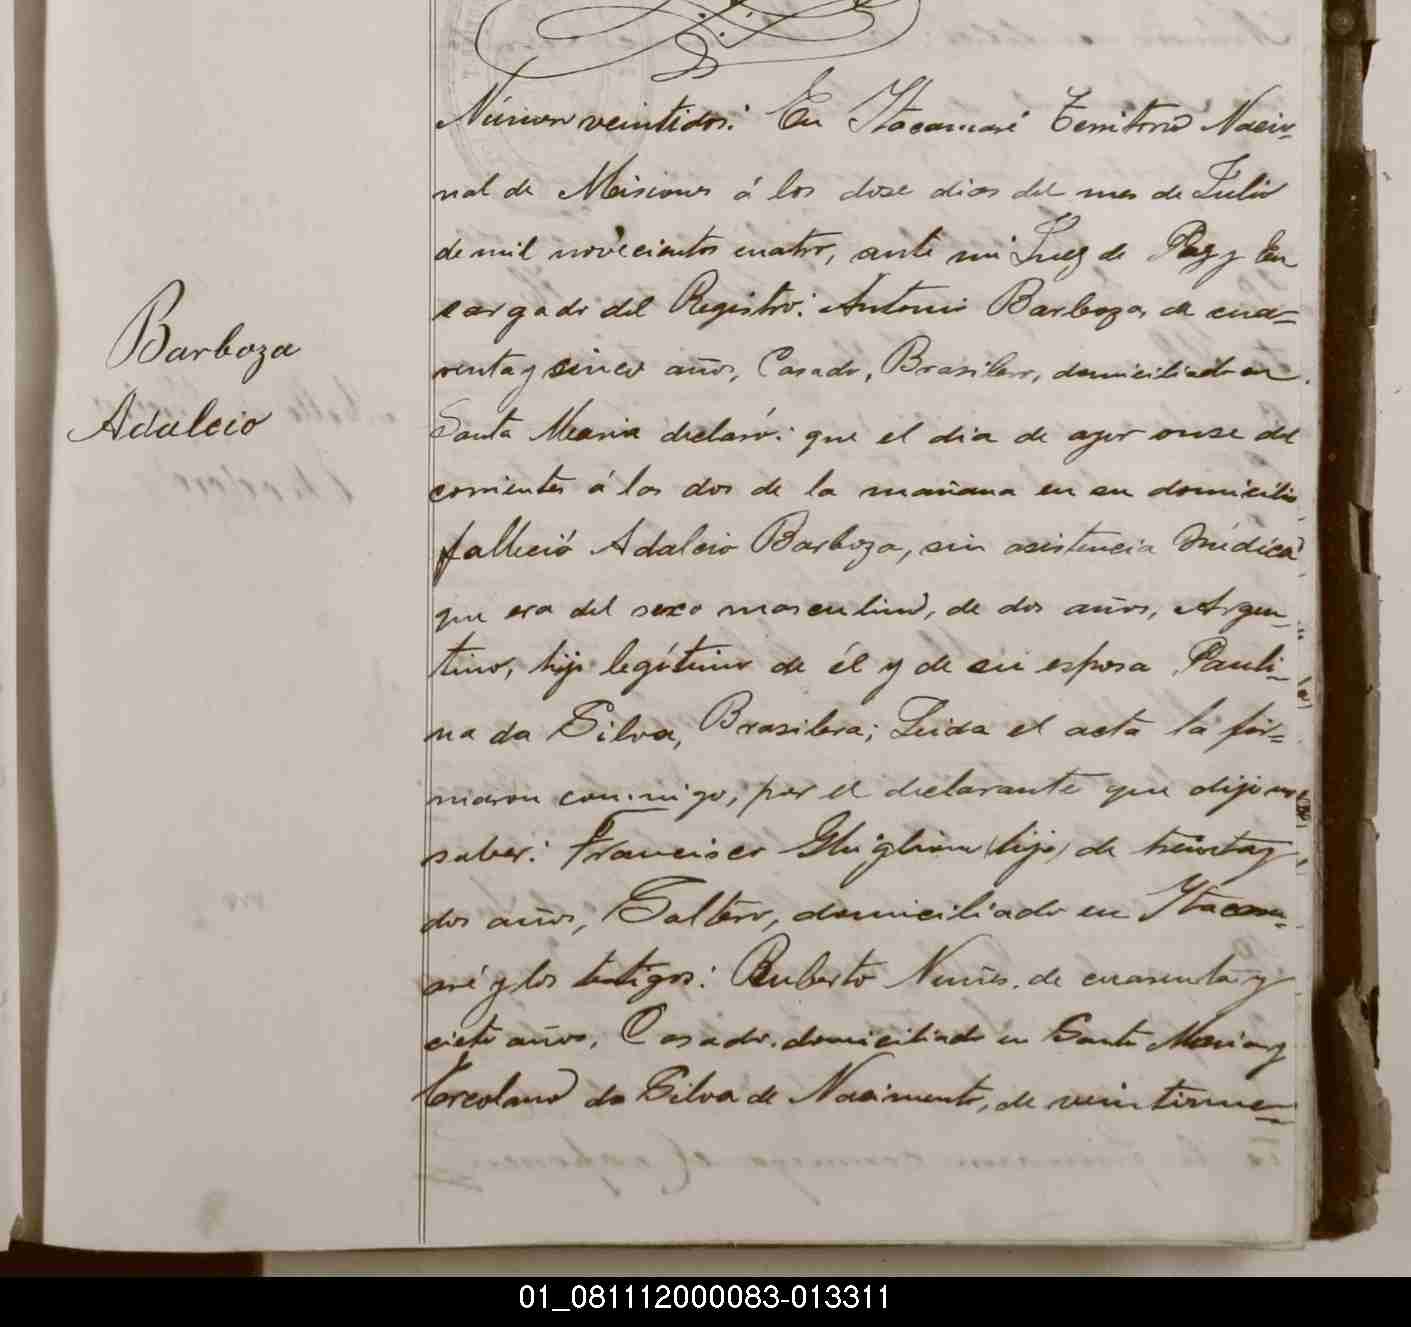 Barboza
Adalcio
Número veintidos: En Itacaruaré Territorio Nacio-
nal de Misiones á los dose dias del mes de Julio
de mil novecientos cuatro, ante mi Juez de Paz y En
cargado del Registro: Antonio Barboza, de cua=
renta y cinco años, Casado, Brasilero, domiciliado en
Santa Maria declaró: que el dia de ayer onse del
corriente á las dos de la mañana en su domicilio
falleció Adalcio Barboza, sin asistencia médica
que era del sexo masculino, de dos años, Argen-
tino, hijo legítimo de él y de su esposa Pauli-
na da Silva, Brasilera; Leida el acta la fir=
maron conmigo, por el declarante que dijo no
saber: Francisco (hijo) de treinta y
dos años, Soltero, domiciliado en
y los testigos: Ruberto Nuñes, de cuarenta y
ciete años, Casado, domiciliado en Santa Maria y
Ercolano da Silva de Nacimento, de veintinue=
01_081112000083-013311